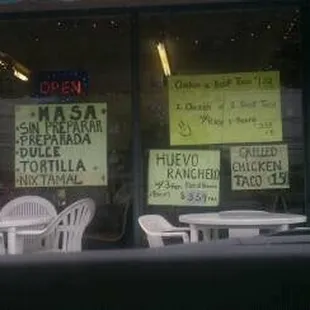 OPEN
MASA
SIN PREPARAR
PREPARADA
DULCE
TORTILLA
NIXTAMAL
Chicken & Beef Taco
1 Chicken & 1 Beef Taco
w/Rice & Beans
HUEVO
RANCHERO
$3.59
GRILLED
CHICKEN
TACO